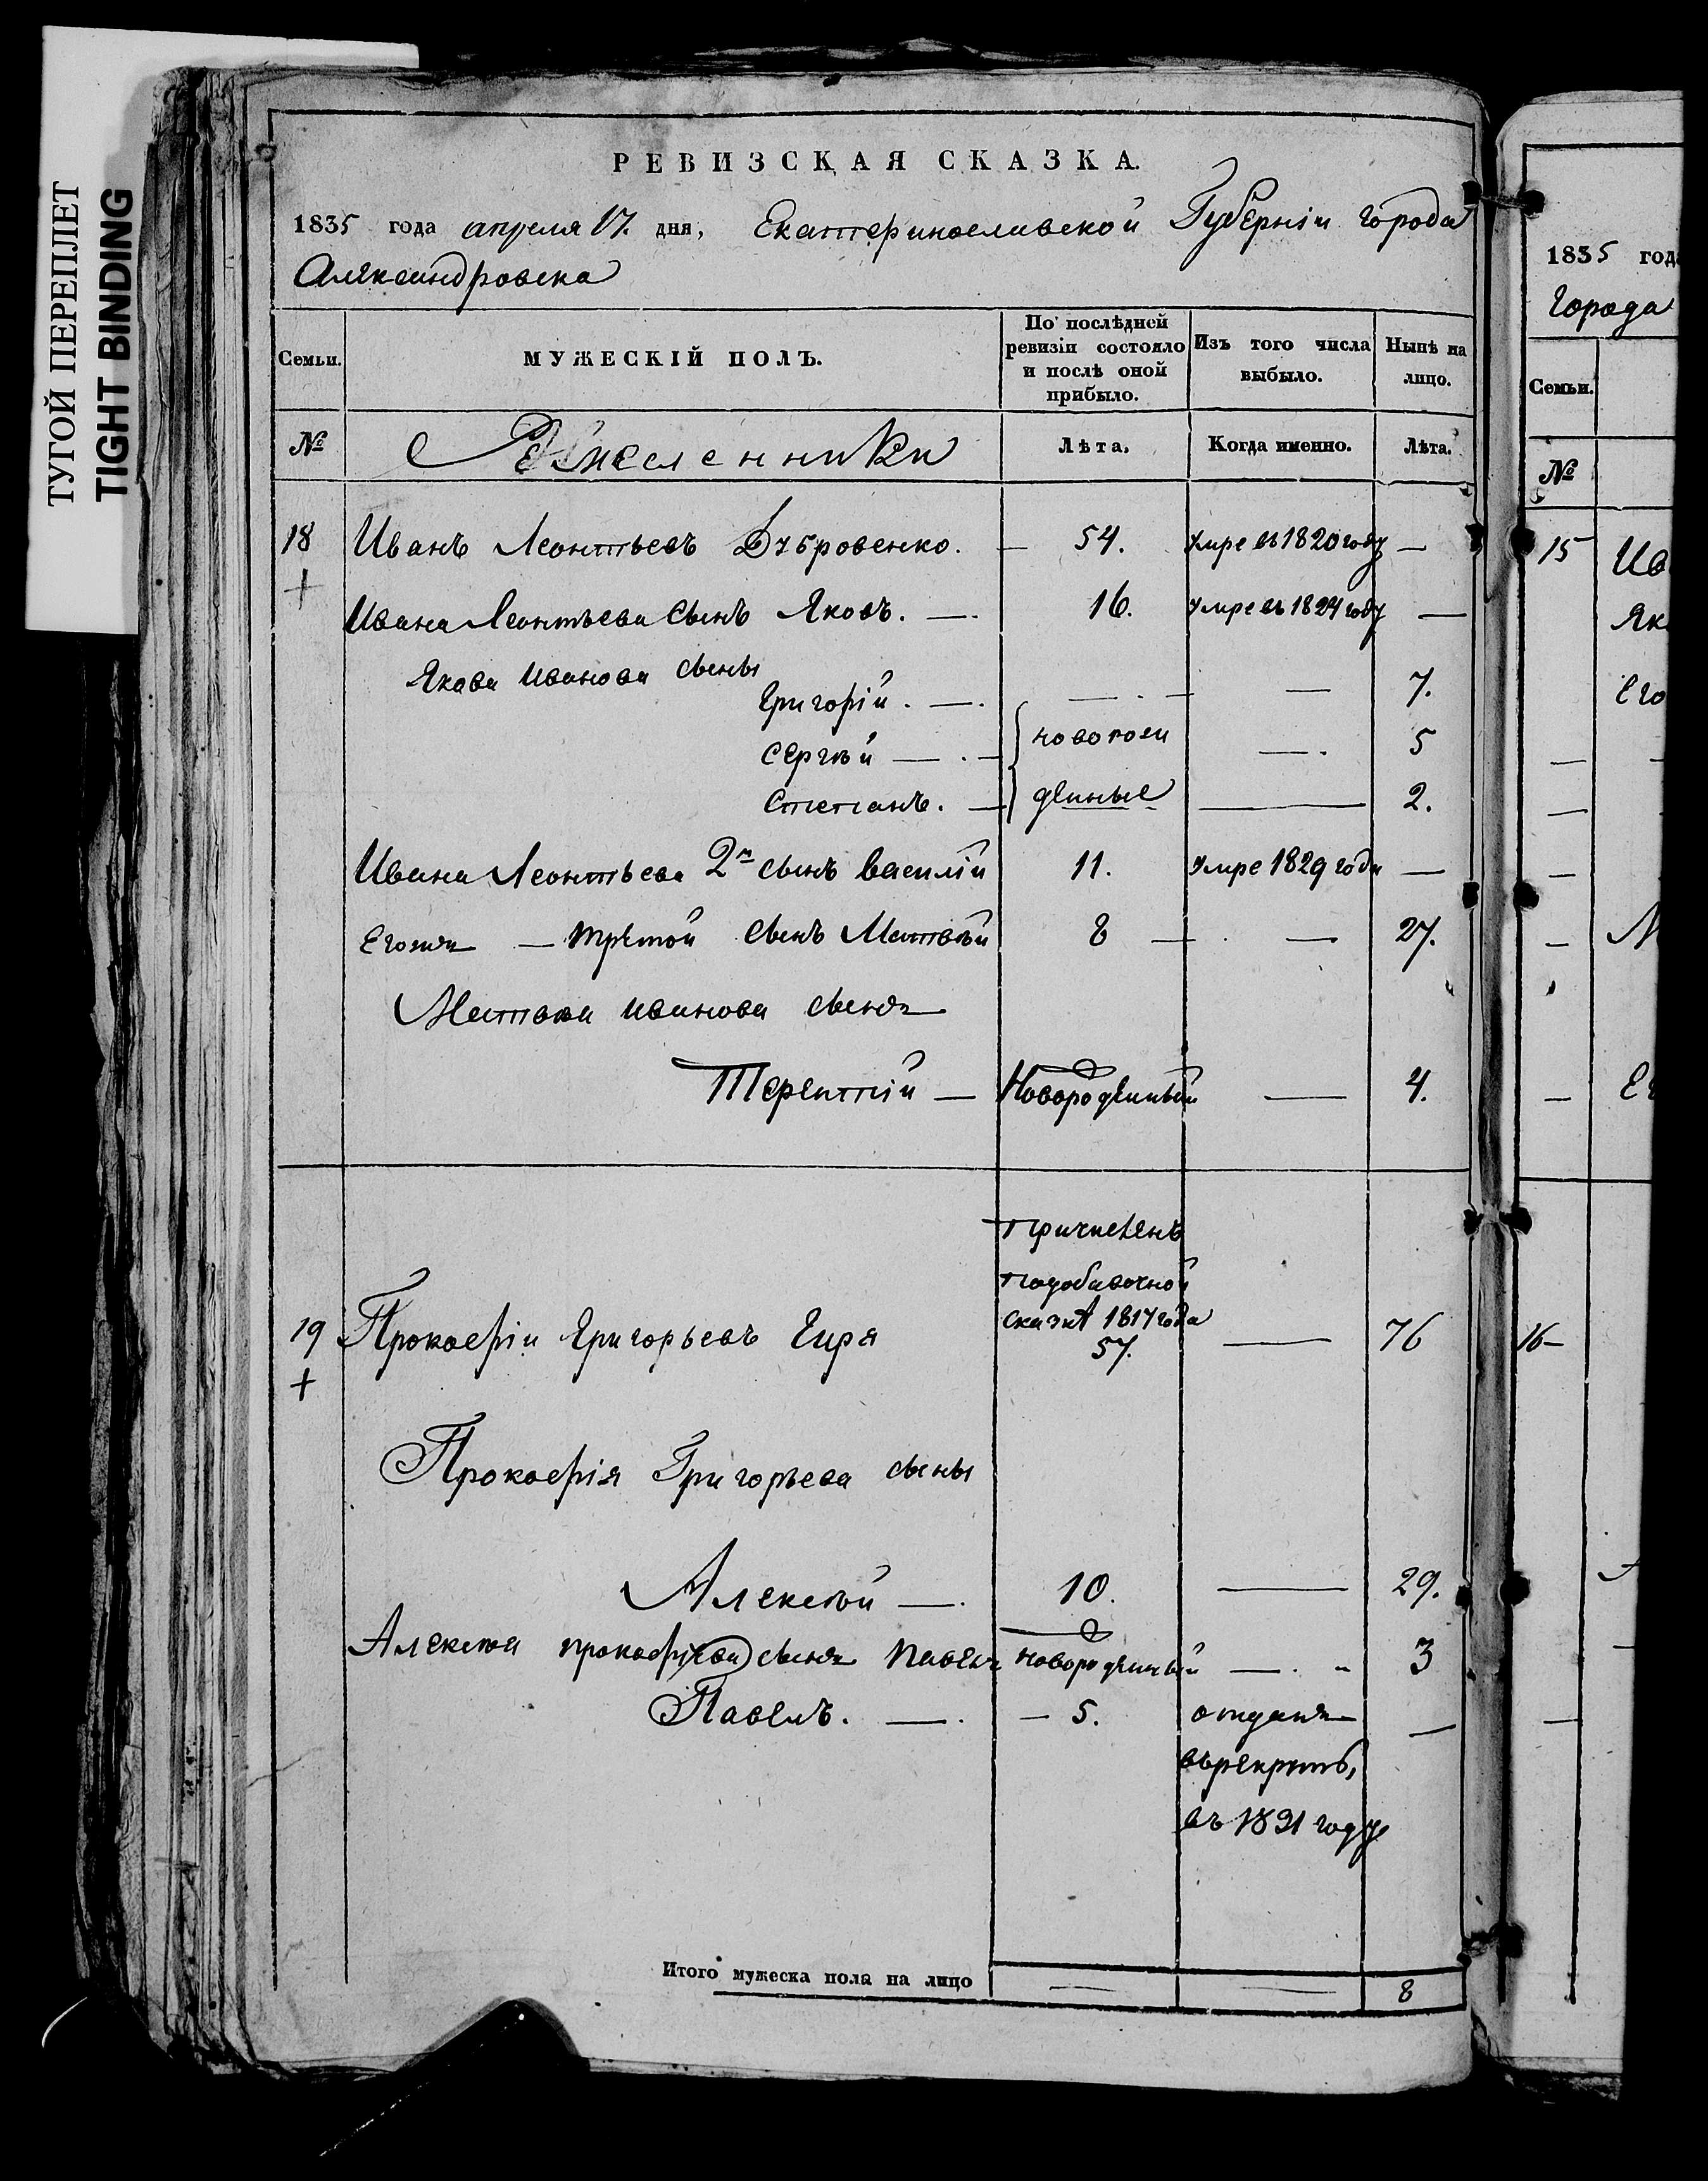 ТУГОЙ ПЕРЕПЛЕТ
TIGHT BINDING
РЕВИЗСКАЯ СКАЗКА.
1835 года апреля 17. дня, Екатеринославской Губерніи города
Александровска
Семьи. МУЖЕСКІЙ ПОЛЪ. По послѣдней ревизіи состояло и послѣ оной прибыло. Изъ того числа выбыло. Нынѣ на лицо.
№ Ремесленники Лѣта. Когда именно. Лѣта.
18 Иванъ Леонтьевъ Дубровенко. — 54. умре въ 1820 году —
+ Ивана Леонтьева сынъ Яковъ. — 16. умре въ 1824 году —
Якова Иванова сыны
Григорій. — — — 7.
Сергѣй — новорож — 5
Степанъ. — денные — 2.
Ивана Леонтьева 2й сынъ Василій 11. умре 1829 года —
Егоже — третой сынъ Матвѣй 8 — — 27.
Матвѣя Иванова сынъ
Терентій — Новорожденный — 4.
Причисленъ
по добавочной
сказкѣ 1817 года
19 Прокофій Григорьевъ 57. — 76
+
Прокофія Григорьева сыны
Алексѣй — 10. — 29.
Алексѣя Прокофьева сынъ Павелъ новорожденный — 3
Павелъ. — 5. отданъ —
въ рекруты,
въ 1831 году
Итого мужеска пола на лицо — — 8
1835 года
Города
Семьи.
№
15 Ив
Як
Его
М
16